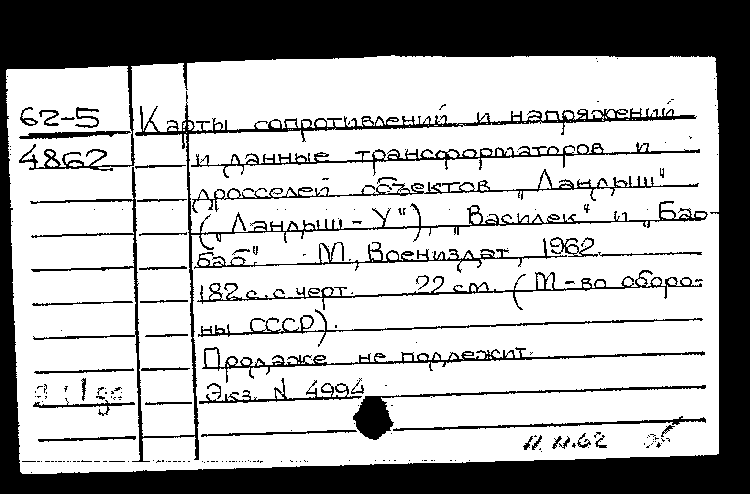 62-5 Карты сопротивлений и напряжений
4862 и данные трансформаторов и
дросселей объектов „Ландыш"
(„Ландыш-У"), „Василек" и „Бао-
баб". М., Воениздат, 1962.
182 с. с черт. 22 см. (М-во оборо-
ны СССР).
Продаже не подлежит.
Экз. N 4994
11.11.62